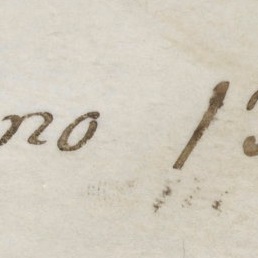 no 13